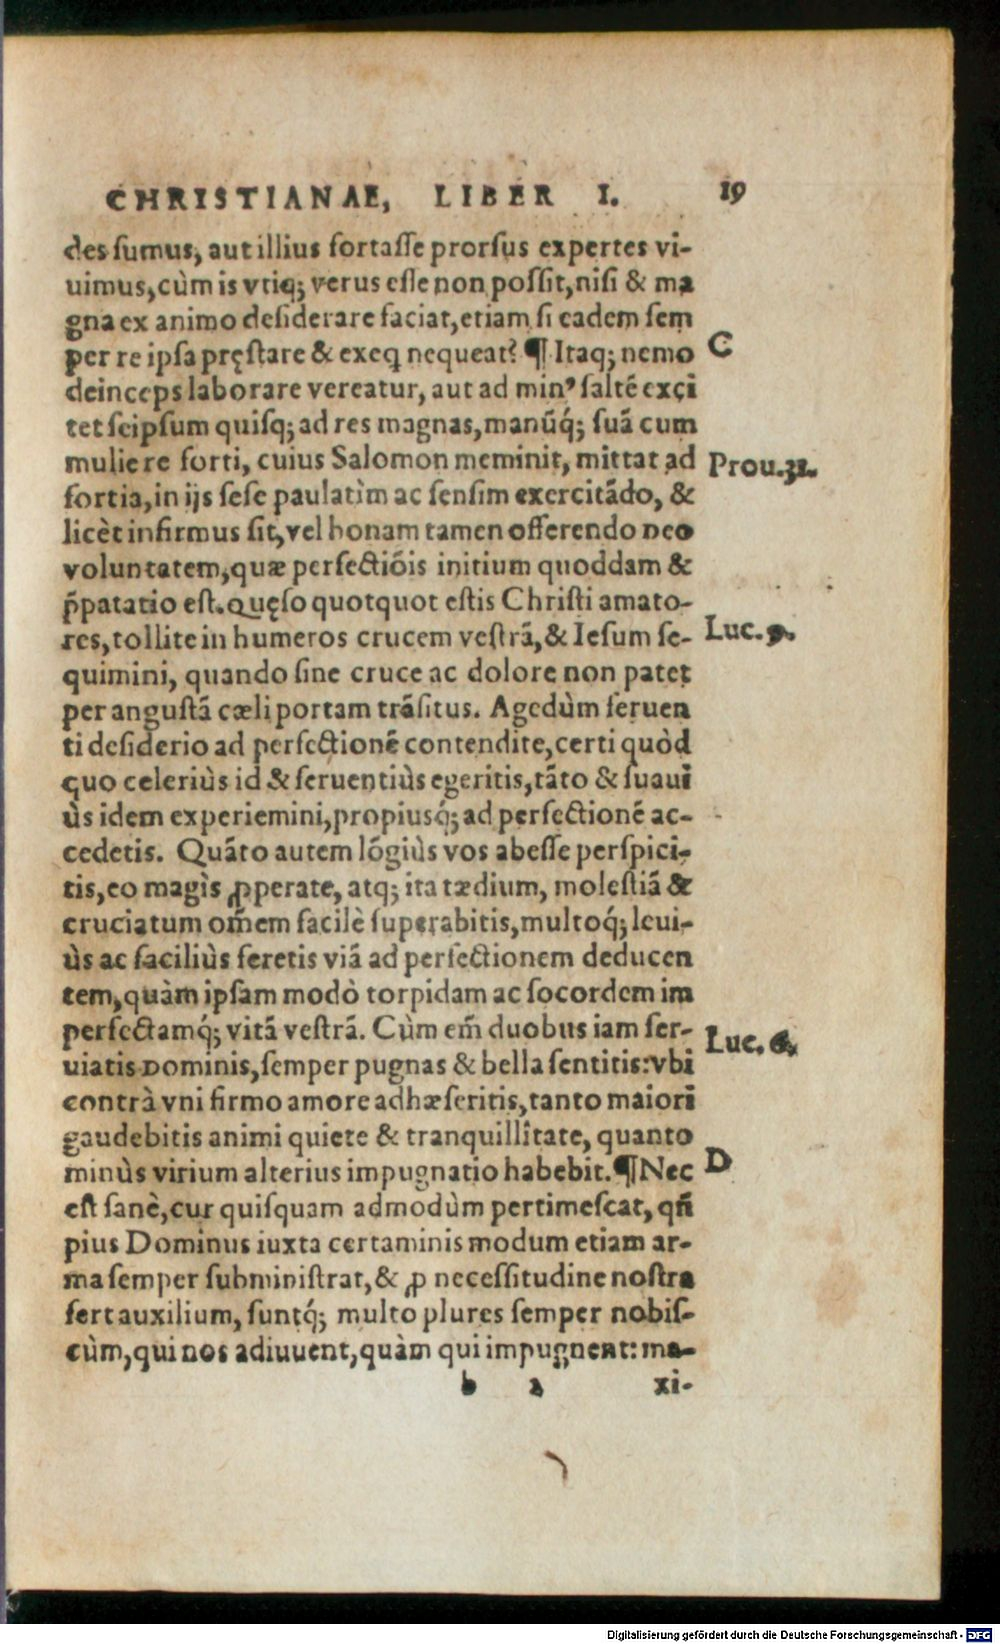 CHRISTIANAE, LIBER I. 19
des sumus, aut illius fortasse prorsus expertes vi-
uimus, cùm is vtiq; verus esse non possit, nisi & ma
gna ex animo desiderare faciat, etiam si eadem sem
per re ipsa pręstare & exeq̃ nequeat? ¶ Itaq; nemo
C
deinceps laborare vereatur, aut ad min⁹ saltẽ exci
tet seipsum quisq; ad res magnas, manũq́; suã cum
muliere forti, cuius Salomon meminit, mittat ad
Prou.31.
fortia, in ijs sese paulatìm ac sensim exercitãdo, &
licèt infirmus sit, vel bonam tamen offerendo Deo
voluntatem, quæ perfectiõis initium quoddam &
p̃patatio est. Quęso quotquot estis Christi amato-
res, tollite in humeros crucem vestrã, & Iesum se-
Luc. 9.
quimini, quando sine cruce ac dolore non patet
per angustã cæli portam trãsitus. Agedùm feruen
ti desiderio ad perfectionẽ contendite, certi quòd
quo celeriùs id & feruentiùs egeritis, tãto & suaui
ùs idem experiemini, propiusq́; ad perfectionẽ ac-
cedetis. Quãto autem lõgiùs vos abesse perspici-
tis, eo magìs ꝓperate, atq; ita tædium, molestiã &
cruciatum om̃em facilè superabitis, multoq́; leui-
ùs ac faciliùs feretis viã ad perfectionem deducen
tem, quàm ipsam modò torpidam ac socordem im
perfectamq́; vitã vestrã. Cùm em̃ duobus iam ser-
Luc. 6.
uiatis Dominis, semper pugnas & bella sentitis: vbi
contrà vni firmo amore adhæseritis, tanto maiori
gaudebitis animi quiete & tranquillitate, quanto
minùs virium alterius impugnatio habebit. ¶ Nec
D
est sanè, cur quisquam admodùm pertimescat, qñ
pius Dominus iuxta certaminis modum etiam ar-
ma semper subministrat, & ꝓ necessitudine nostra
fert auxilium, suntq́; multo plures semper nobis-
cùm, qui nos adiuuent, quàm qui impugnent: ma-
b 2 xi-
Digitalisierung gefördert durch die Deutsche Forschungsgemeinschaft - DFG